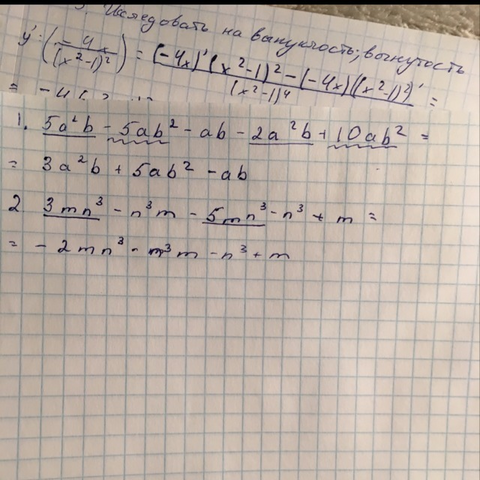 3. Исследовать на выпуклость; вогнутость
y': (-4x/(x²-1)²) = (-4x)'(x²-1)² - (-4x)((x²-1)²)' / (x²-1)⁴ =
= -4
1. 5a²b - 5ab² - ab - 2a²b + 10ab² =
= 3a²b + 5ab² - ab
2. 3mn³ - n³m - 5mn³ - n³ + m =
= - 2mn³ - n³m - n³ + m